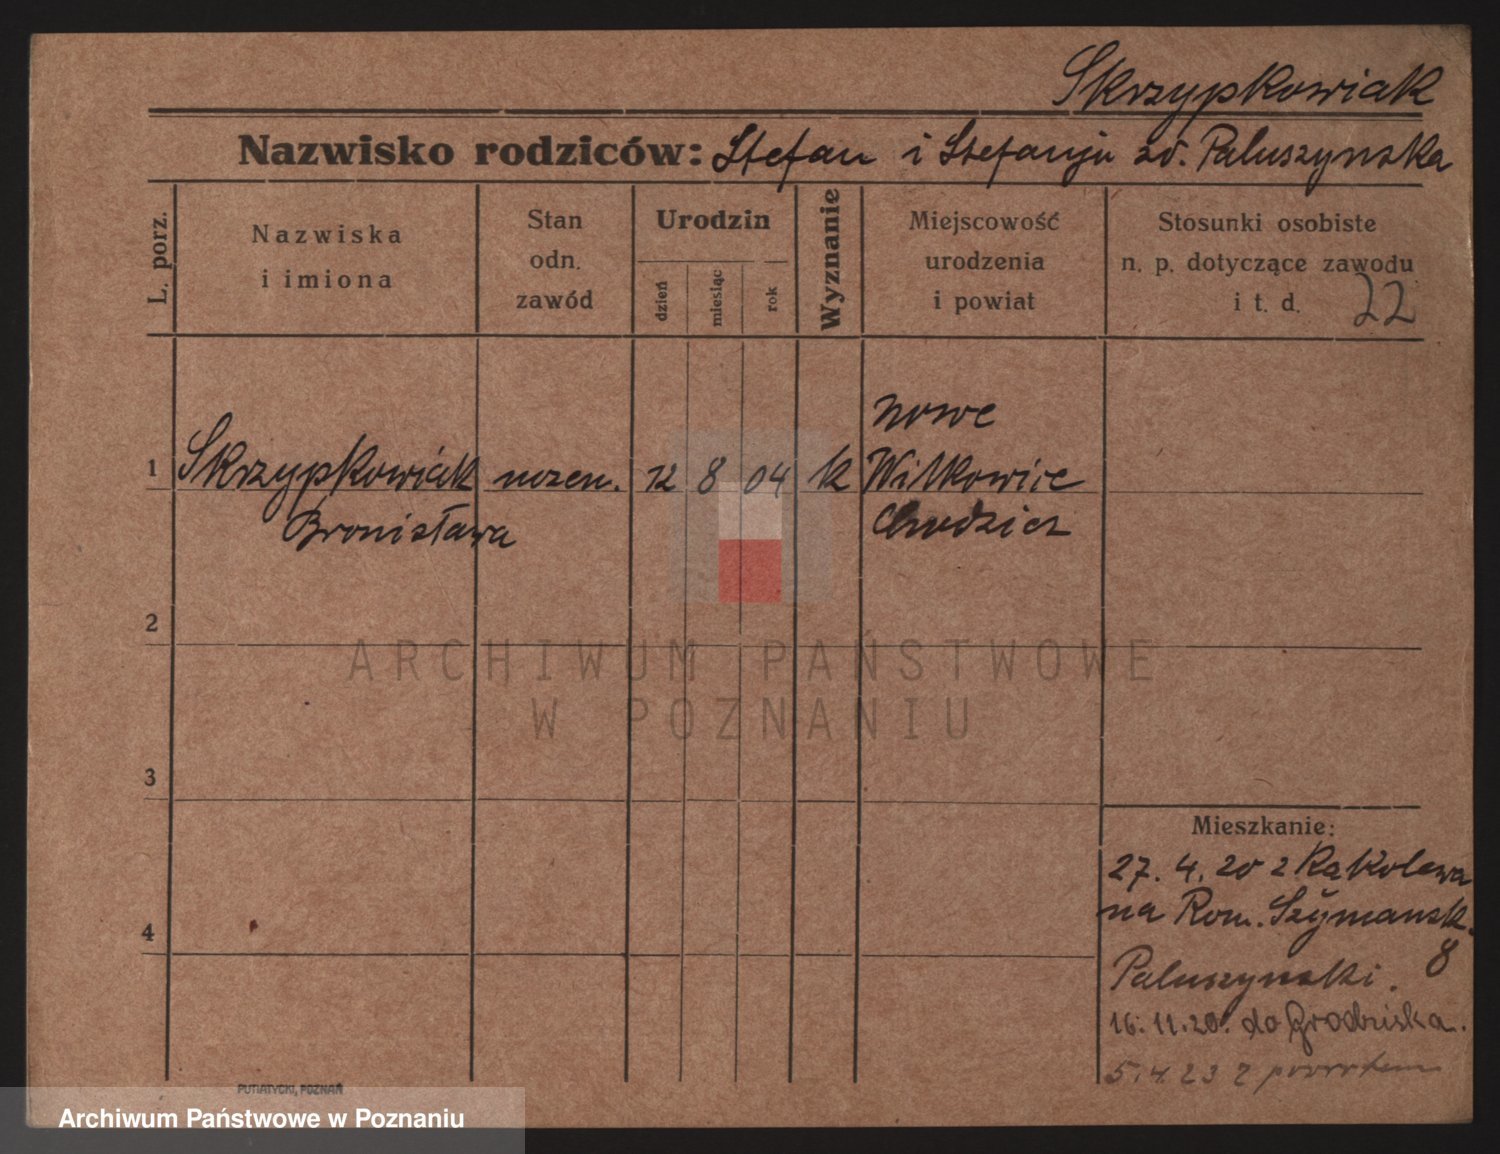 Skrzypkowiak
Nazwisko rodziców: Stefan i Stefanja zd. Paluszynska
L. porz.
Nazwiska
i imiona
Stan
odn.
zawód
Urodzin
dzień
miesiąc
rok
Wyznanie
Miejscowość
urodzenia
i powiat
Stosunki osobiste
n. p. dotyczące zawodu
i t. d. 22
nowe
1 Skrzypkowiak 12 8 04 k Witkowice
Bronisława
2
ARCHIWUM PAŃSTWOWE
W POZNANIU
3
Mieszkanie:
27. 4. 20 z Rąkolewa
na Rom. Szymansk.
8
4
Paluszynski.
16. 11. 20. do Grodziska.
5. 4 23 z powrotem
PUTIATYCKI, POZNAŃ
Archiwum Państwowe w Poznaniu